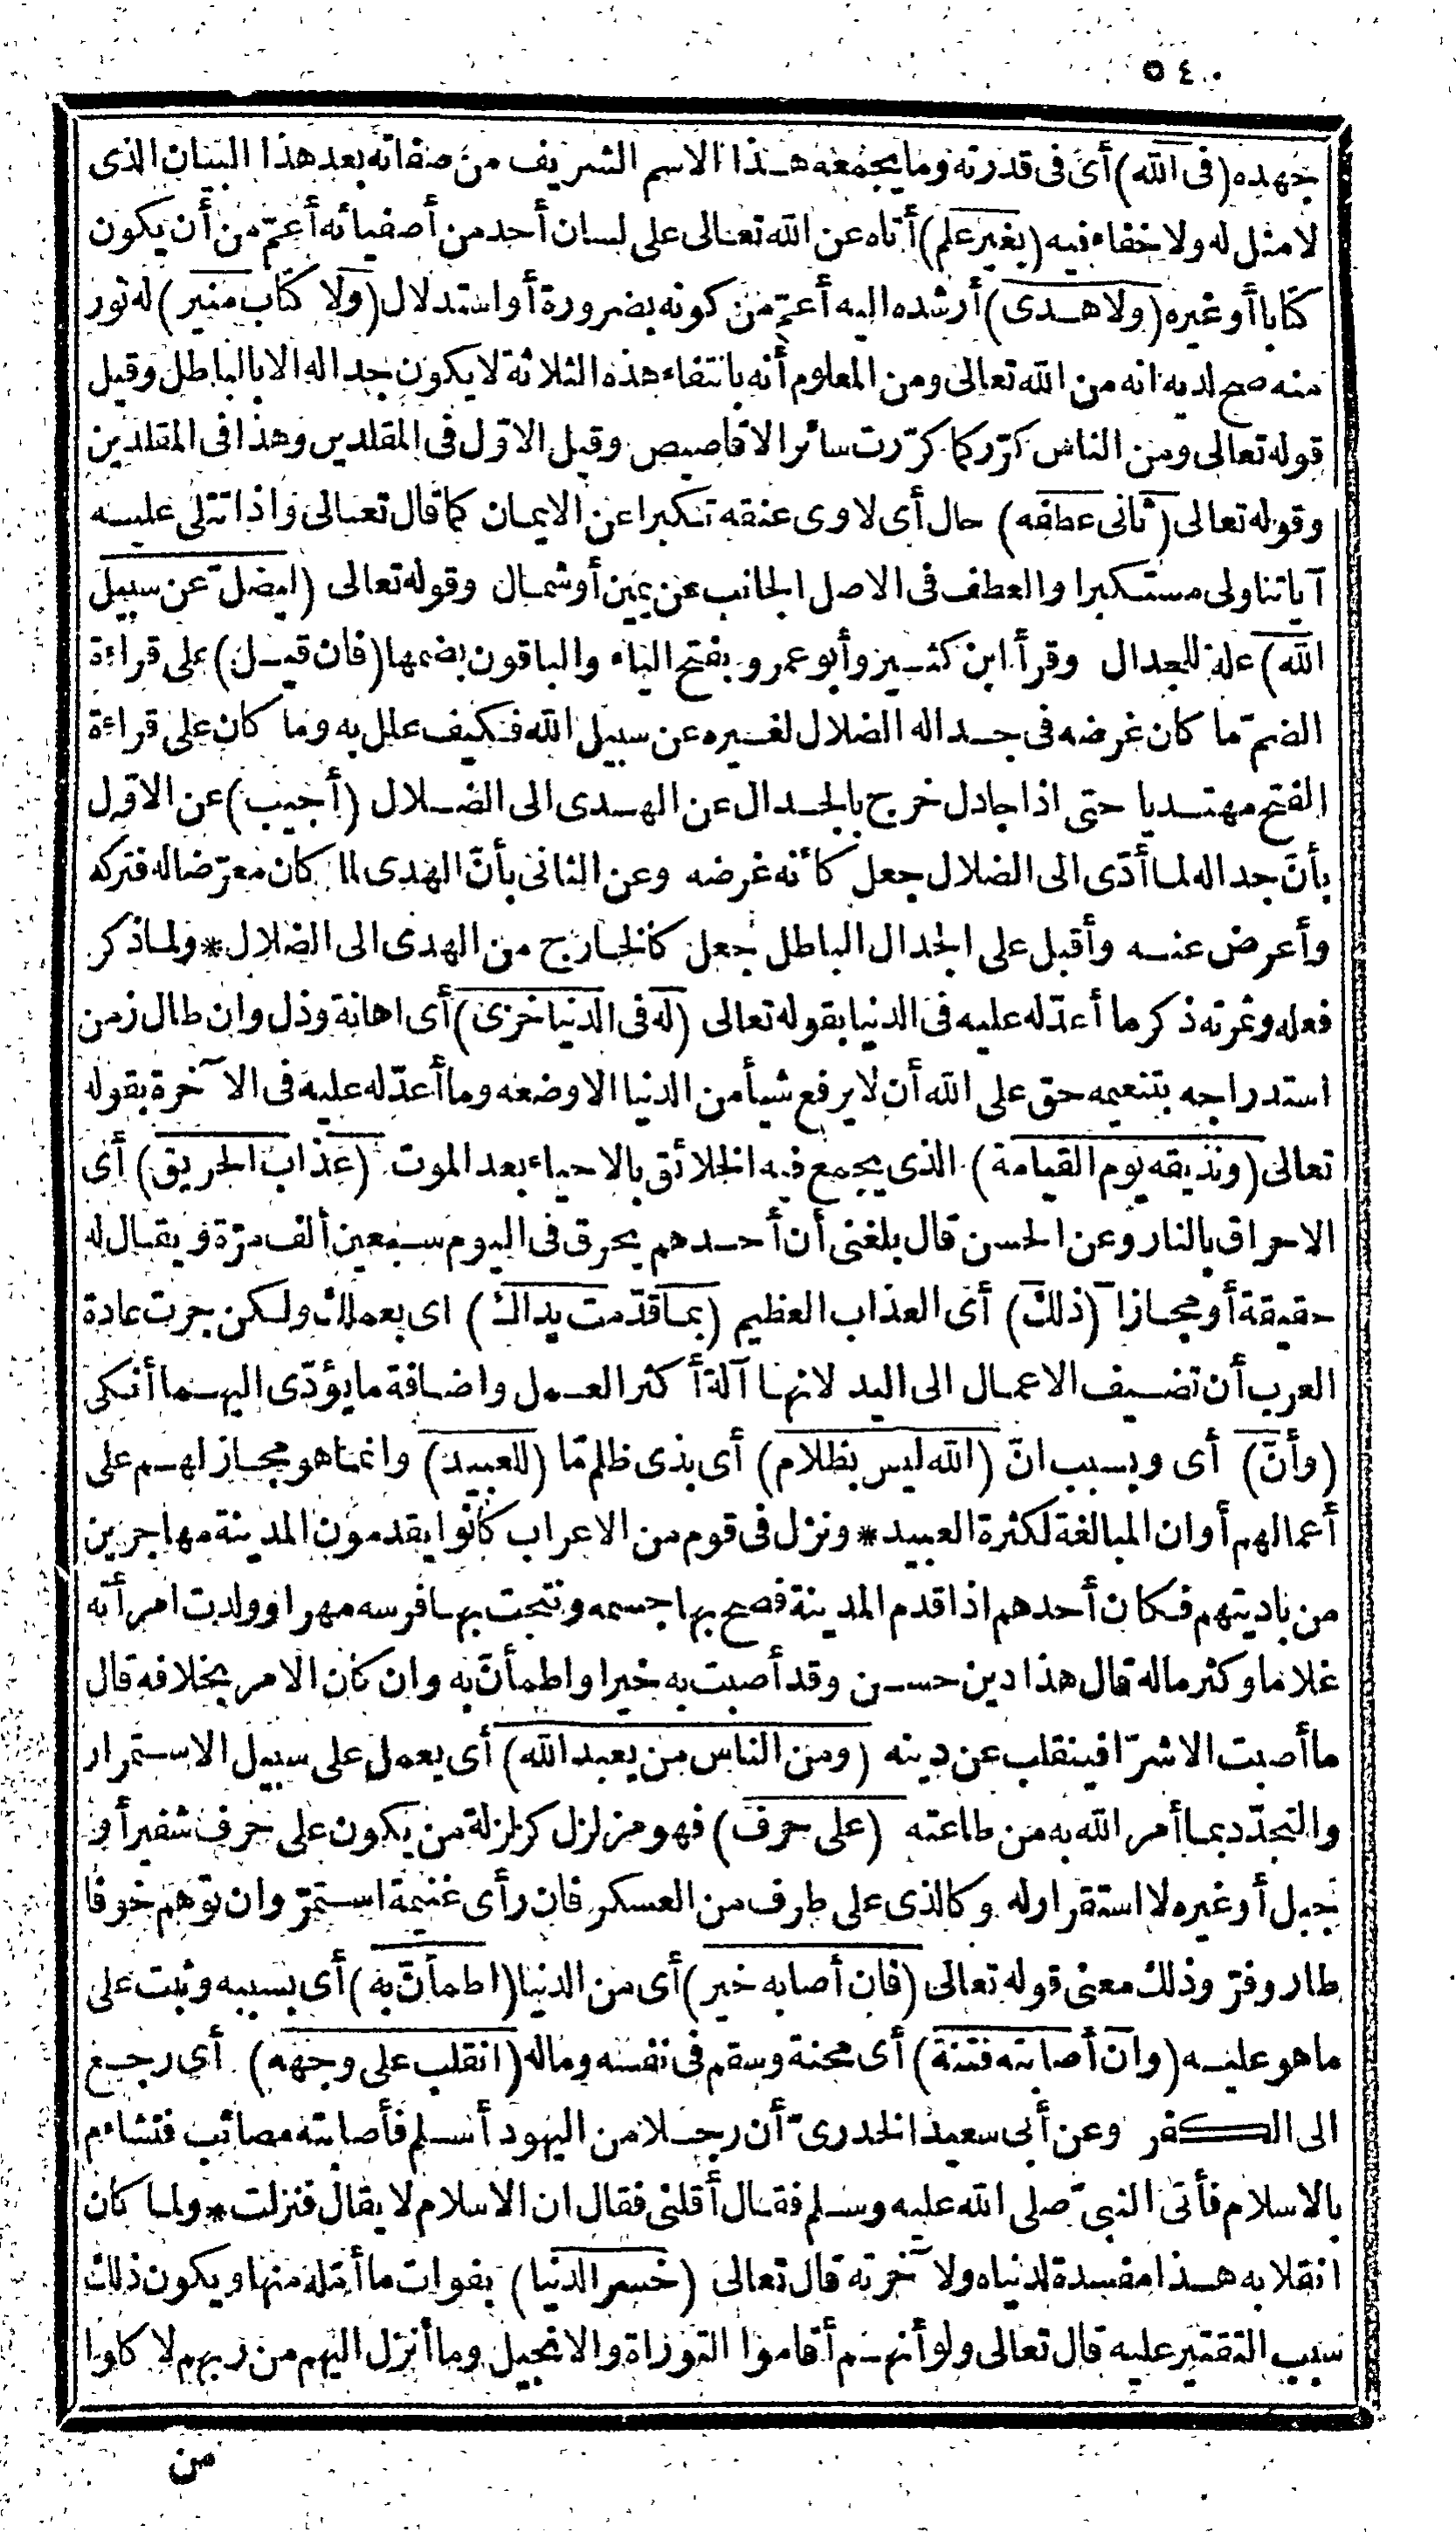 ٥٤٠
جهده (في الله) أى فى قدرته وما يجمعه هذا الاسم الشريف من صفاته بعد هذا البيان الذى
لا مثل له ولا خفاء فيه (بغير علم) أتاه عن الله تعالى على لسان أحد من أصفيائه أعمّ من أن يكون
كتابا أو غيره (ولا هدى) أرشده اليه أعمّ من كونه بضرورة أو استدلال (ولا كتاب منير) له نور
منه صح لديه انه من الله تعالى ومن المعلوم أنه بانتفاء هذه الثلاثة لا يكون جداله الا بالباطل وقيل
قوله تعالى ومن الناس كرّر كما كرّرت سائر الاقاصيص وقيل الاوّل فى المقلدين وهذا فى المقلدين
وقوله تعالى (ثانى عطفه) حال أى لاوى عنقه تكبرا عن الايمان كما قال تعالى واذا تتلى عليه
آياتنا ولى مستكبرا والعطف فى الاصل الجانب عن يمين أو شمال وقوله تعالى (ليضلّ عن سبيل
الله) علة للجدال وقرأ ابن كثير وأبو عمرو بفتح الياء والباقون بضمها (فان قيل) على قراءة
الضمّ ما كان غرضه فى جداله الضلال لغيره عن سبيل الله فكيف علل به وما كان على قراءة
الفتح مهتديا حتى اذا جادل خرج بالجدال عن الهدى الى الضلال (أجيب) عن الاوّل
بأنّ جداله لما أدّى الى الضلال جعل كأنه غرضه وعن الثانى بأنّ الهدى لما كان معرّضا له فتركه
وأعرض عنه وأقبل على الجدال الباطل جعل كالخارج من الهدى الى الضلال * ولما ذكر
فعله وثمرته ذكر ما أعدّ له عليه فى الدنيا بقوله تعالى (له فى الدنيا خزى) أى اهانة وذل وان طال زمن
استدراجه بتنعيمه حق على الله أن لا يرفع شيأ من الدنيا الا وضعه وما أعدّ له عليه فى الآخرة بقوله
تعالى (ونذيقه يوم القيامة) الذى يجمع فيه الخلائق بالاحياء بعد الموت (عذاب الحريق) أى
الاحراق بالنار وعن الحسن قال بلغنى أن أحدهم يحرق فى اليوم سبعين ألف مرّة ويقال له
حقيقة أو مجازا (ذلك) أى العذاب العظيم (بما قدّمت يداك) اى بعملك ولكن جرت عادة
العرب أن تضيف الاعمال الى اليد لانها آلة أكثر العمل واضافة ما يؤدّى اليهما أنكى
(وأنّ) أى وبسبب انّ (الله ليس بظلام) أى بذى ظلم مّا (للعبيد) وانما هو مجاز لهم على
أعمالهم أو ان المبالغة لكثرة العبيد * ونزل فى قوم من الاعراب كانوا يقدمون المدينة مهاجرين
من باديتهم فكان أحدهم اذا قدم المدينة فصح بها جسمه ونتجت بها فرسه مهرا وولدت امرأته
غلاما وكثر ماله قال هذا دين حسن وقد أصبت به خيرا واطمأنّ به وان كان الامر بخلافه قال
ما أصبت الا شرّا فينقلب عن دينه (ومن الناس من يعبد الله) أى يعمل على سبيل الاستمرار
والتجدّد بما أمر الله به من طاعته (على حرف) فهو مزلزل كزلزلة من يكون على حرف شفير أو
جبل أو غيره لا استقرار له وكالذى على طرف من العسكر فان رأى غنيمة استمرّ وان توهم خوفا
طار وفرّ وذلك معنى قوله تعالى (فان أصابه خير) أى من الدنيا (اطمأنّ به) أى بسببه وثبت على
ما هو عليه (وان أصابته فتنة) أى محنة وسقم فى نفسه وماله (انقلب على وجهه) أى رجع
الى الكفر وعن أبى سعيد الخدرىّ أن رجلا من اليهود أسلم فأصابته مصائب فتشاءم
بالاسلام فأتى النبىّ صلى الله عليه وسلم فقال أقلنى فقال ان الاسلام لا يقال فنزلت * ولما كان
انقلابه هذا مفسدة لدنياه ولآخرته قال تعالى (خسر الدنيا) بفوات ما أمّله منها ويكون ذلك
سبب التقتير عليه قال تعالى ولو أنهم أقاموا التوراة والانجيل وما أنزل اليهم من ربهم لا كلوا
من